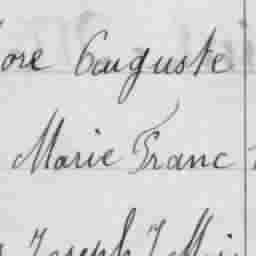 ore Auguste
Marie Franc
Joseph J Mari